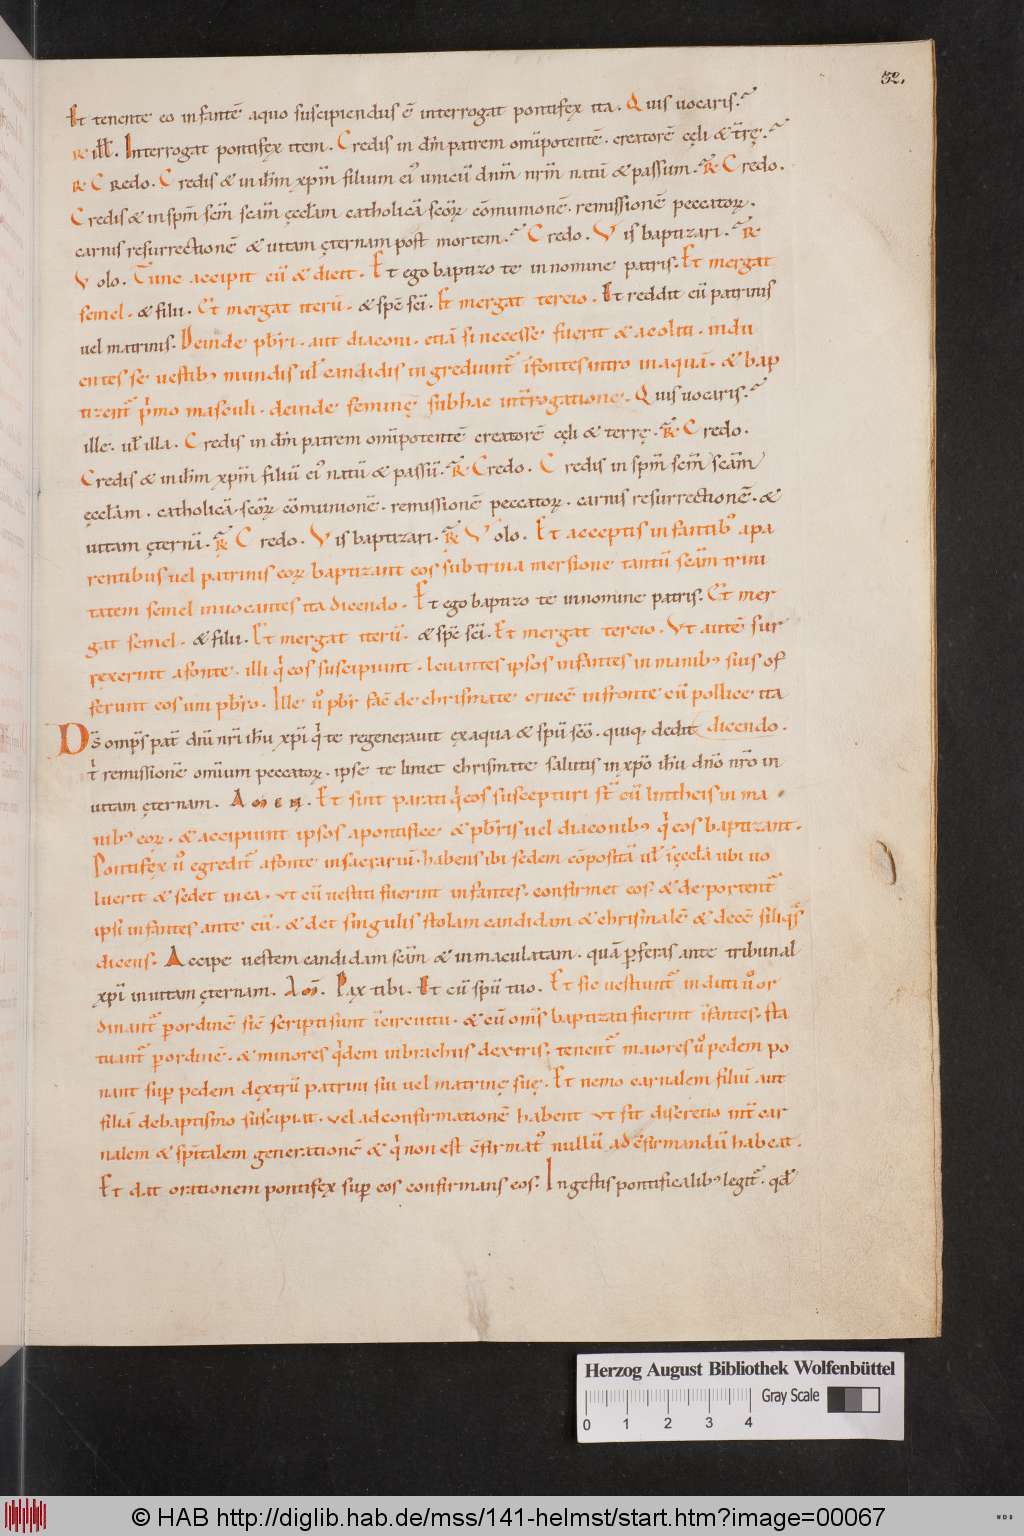 32.
Et tenente eo infantē aquo suscipiendus ē interrogat pontifęx ita. Quis uocaris.
R ill. Interrogat pontifęx item. Credis in dm̄ patrem omīpotentē. creatorē cęli & trę.
R CRedo. Credis & in ihm̄ xpm̄ filium ei' unicū dnm̄ nrm̄ natū & passum. R Credo.
Credis & in spm̄ scm̄ scam̄ ęccłam catholicā scoꝝ cōmunionē. remissionē peccatoꝝ.
carnis resurrectionē & uitam ęternam post mortem. Credo. Vis baptizari. R
Volo. Tunc accipit eū & dicit. Et ego baptizo te in nomine patris. Et mergat
semel. & filii. Et mergat iterū. & spc̄ sci. Et mergat tercio. Et reddit eū patrinis
uel matrinis. Deinde pbri. aut diaconi. etiā si necesse fuerit & acoliti. indu
entes se uestib; mundis ul candidis ingrediunt̄ īfontes intro in aquā. & bap
tizent̄ p̄mo masculi. deinde feminę sub hac int̄rogatione. Quis uocaris.
ille. ul illa. Credis in dm̄ patrem omīpotentē creatorē cęli & terrę. R Credo.
Credis & in ihm̄ xpm̄ filiū ei' natū & passū. R Credo. Credis in spm̄ scm̄ scam̄
ęccłam. catholicā. scoꝝ cōmunionē. remissionē peccatoꝝ. carnis resurrectionē. &
uitam ęternā. R Credo. Vis baptizari. R Volo. Et acceptis infantib' apa
rentibus uel patrinis eoꝝ baptizant eos sub trina mersione tantū scam̄ trini
tatem semel inuocantes ita dicendo. Et ego baptizo te in nomine patris. Et mer
gat semel. & filii. Et mergat iterū. & spc̄ sci. Et mergat tercio. Vt autē sur
rexerint afonte. illi q̄ eos suscipiunt. leuantes ipsos infantes in manib; suis of
ferunt eos uni pbro. Ille u° pbr fac̄ de chrismate crucē infronte cū pollice ita
Ds̄ omps̄ pat̄ dnī nrī ihū xpī q̄ te regenerauit ęxaqua & spū scō. quiq; dedit dicendo.
t̄ remissionē omium peccatoꝝ. ipse te linict chrismate salutis in xpō ihū dnō nrō in
uitam ęternam. Amen. Et sint parati q̄ eos suscepturi st̄ cū lintheis in ma
nib; eoꝝ. & accipiunt ipsos apontifice & pbris uel diaconib; q̄ eos baptizant.
Pontifęx u° egredit̄ afonte insacrariū. habens ibi sedem cōpositā ul īęccła ubi uo
luerit & sedet in ea. ut cū uestiti fuerint infantes. confirmet eos. & deportent̄
ipsi infantes ante eū. & det singulis stolam candidam & chrismalē & decē siliqs̄
dicens. Accipe uestem candidam scam̄ & inmaculatam. quā pferas ante tribunal
xpī in uitam ęternam. Am̄. Pax tibi. Et cū spū tuo. Et sic uestiunt̄ induti u° or
dinant̄ p ordinē sic̄ scripti sunt īcircuitu. & cū omīs baptizati fuerint īfantes. sta
tuant̄ p ordinē. & minores q̄dem in brachiis dextris. tenent̄ maiores u° pedem po
nant sup pedem dęxtrū patrini sui uel matrinę suę. Et nemo carnalem filiū aut
filiā debaptismo suscipiat. uel adconfirmationē habent ut sit discretio int̄ car
nalem & spītalem generationē & q̄ non est c̄firmat' nullū ad c̄firmandū habeat.
Et dat orationem pontifęx sup eos confirmans eos. In gestis pontificalib; legit̄. qd
Herzog August Bibliothek Wolfenbüttel
Gray Scale
0 1 2 3 4
© HAB http://diglib.hab.de/mss/141-helmst/start.htm?image=00067